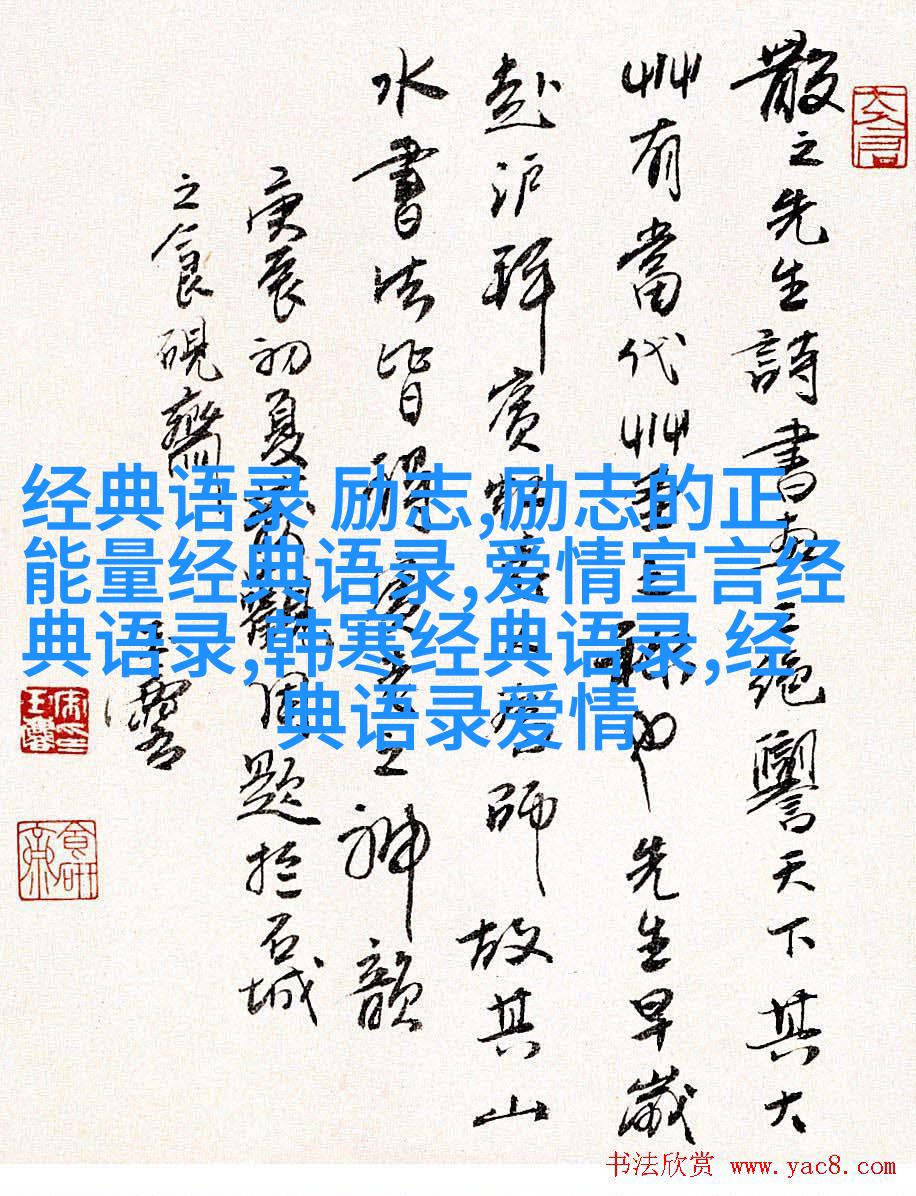 散之先生詩書畫三絕譽天下其大
艸有當代艸聖之稱也先生早歲
赴沪拜賓虹爲師故其山
水書法皆得賓老之神韻
庚辰初夏觀因題於石城
之食硯齋
经典语录 励志,励志的正
能量经典语录,爱情宣言经
典语录,韩寒经典语录,经
典语录爱情
书法欣赏 www.yac8.com